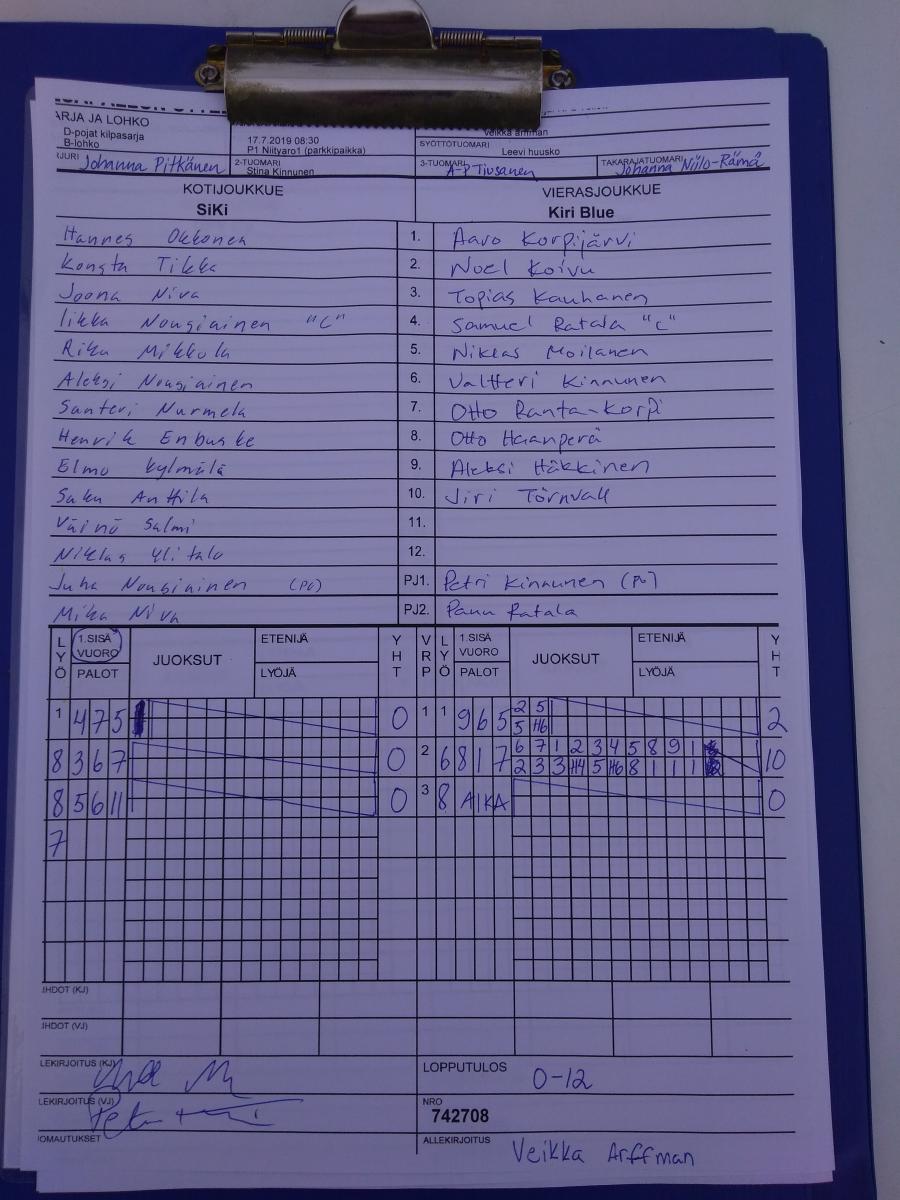 ARJA JA LOHKO
D-pojat kilpasarja
B-lohko
17.7.2019 08:30
P1 Niityaro1 (parkkipaikka)
SYÖTTÖTUOMARI
Leevi huusko
JURI Johanna Pitkänen
2-TUOMARI
Stina Kinnunen
3-TUOMARI A-P Tiusanen
TAKARAJATUOMARI Johanna Niilo-Rämä
KOTIJOUKKUE VIERASJOUKKUE
SiKi Kiri Blue
Hannes Okkonen 1. Aaro Korpijärvi
Konsta Tikka 2. Noel Koivu
Joona Niva 3. Topias Kauhanen
Iikka Nousiainen "C" 4. Samuel Ratala "C"
Riku Mikkola 5. Niklas Moilanen
Aleksi Nousiainen 6. Valtteri Kinnunen
Santeri Nurmela 7. Otto Ranta-Korpi
Henrik Enbuske 8. Otto Haanperä
Elmo Kylmälä 9. Aleksi Häkkinen
Saku Anttila 10. Jiri Törnvall
Väinö Salmi 11.
Niklas Ylitalo 12.
Juha Nousiainen (PJ) PJ1. Petri Kinnunen (PJ)
Mika Niva PJ2. Panu Ratala
LYÖ 1.SISÄ VUORO PALOT JUOKSUT ETENIJÄ LYÖJÄ YHT VRP LYÖ 1.SISÄ VUORO PALOT JUOKSUT ETENIJÄ LYÖJÄ YHT
1 4 7 5 0 1 1 9 6 5 2 5 2
5 H6
8 3 6 7 0 2 6 8 1 7 6 7 1 2 3 4 5 8 9 1 10
2 3 3 H4 5 H6 8 1 1 1
8 5 6 11 0 3 8 AIKA 0
7
IHDOT (KJ)
IHDOT (VJ)
LEKIRJOITUS (KJ)
LOPPUTULOS 0-12
LEKIRJOITUS (VJ)
NRO
742708
OMAUTUKSET
ALLEKIRJOITUS Veikka Arffman